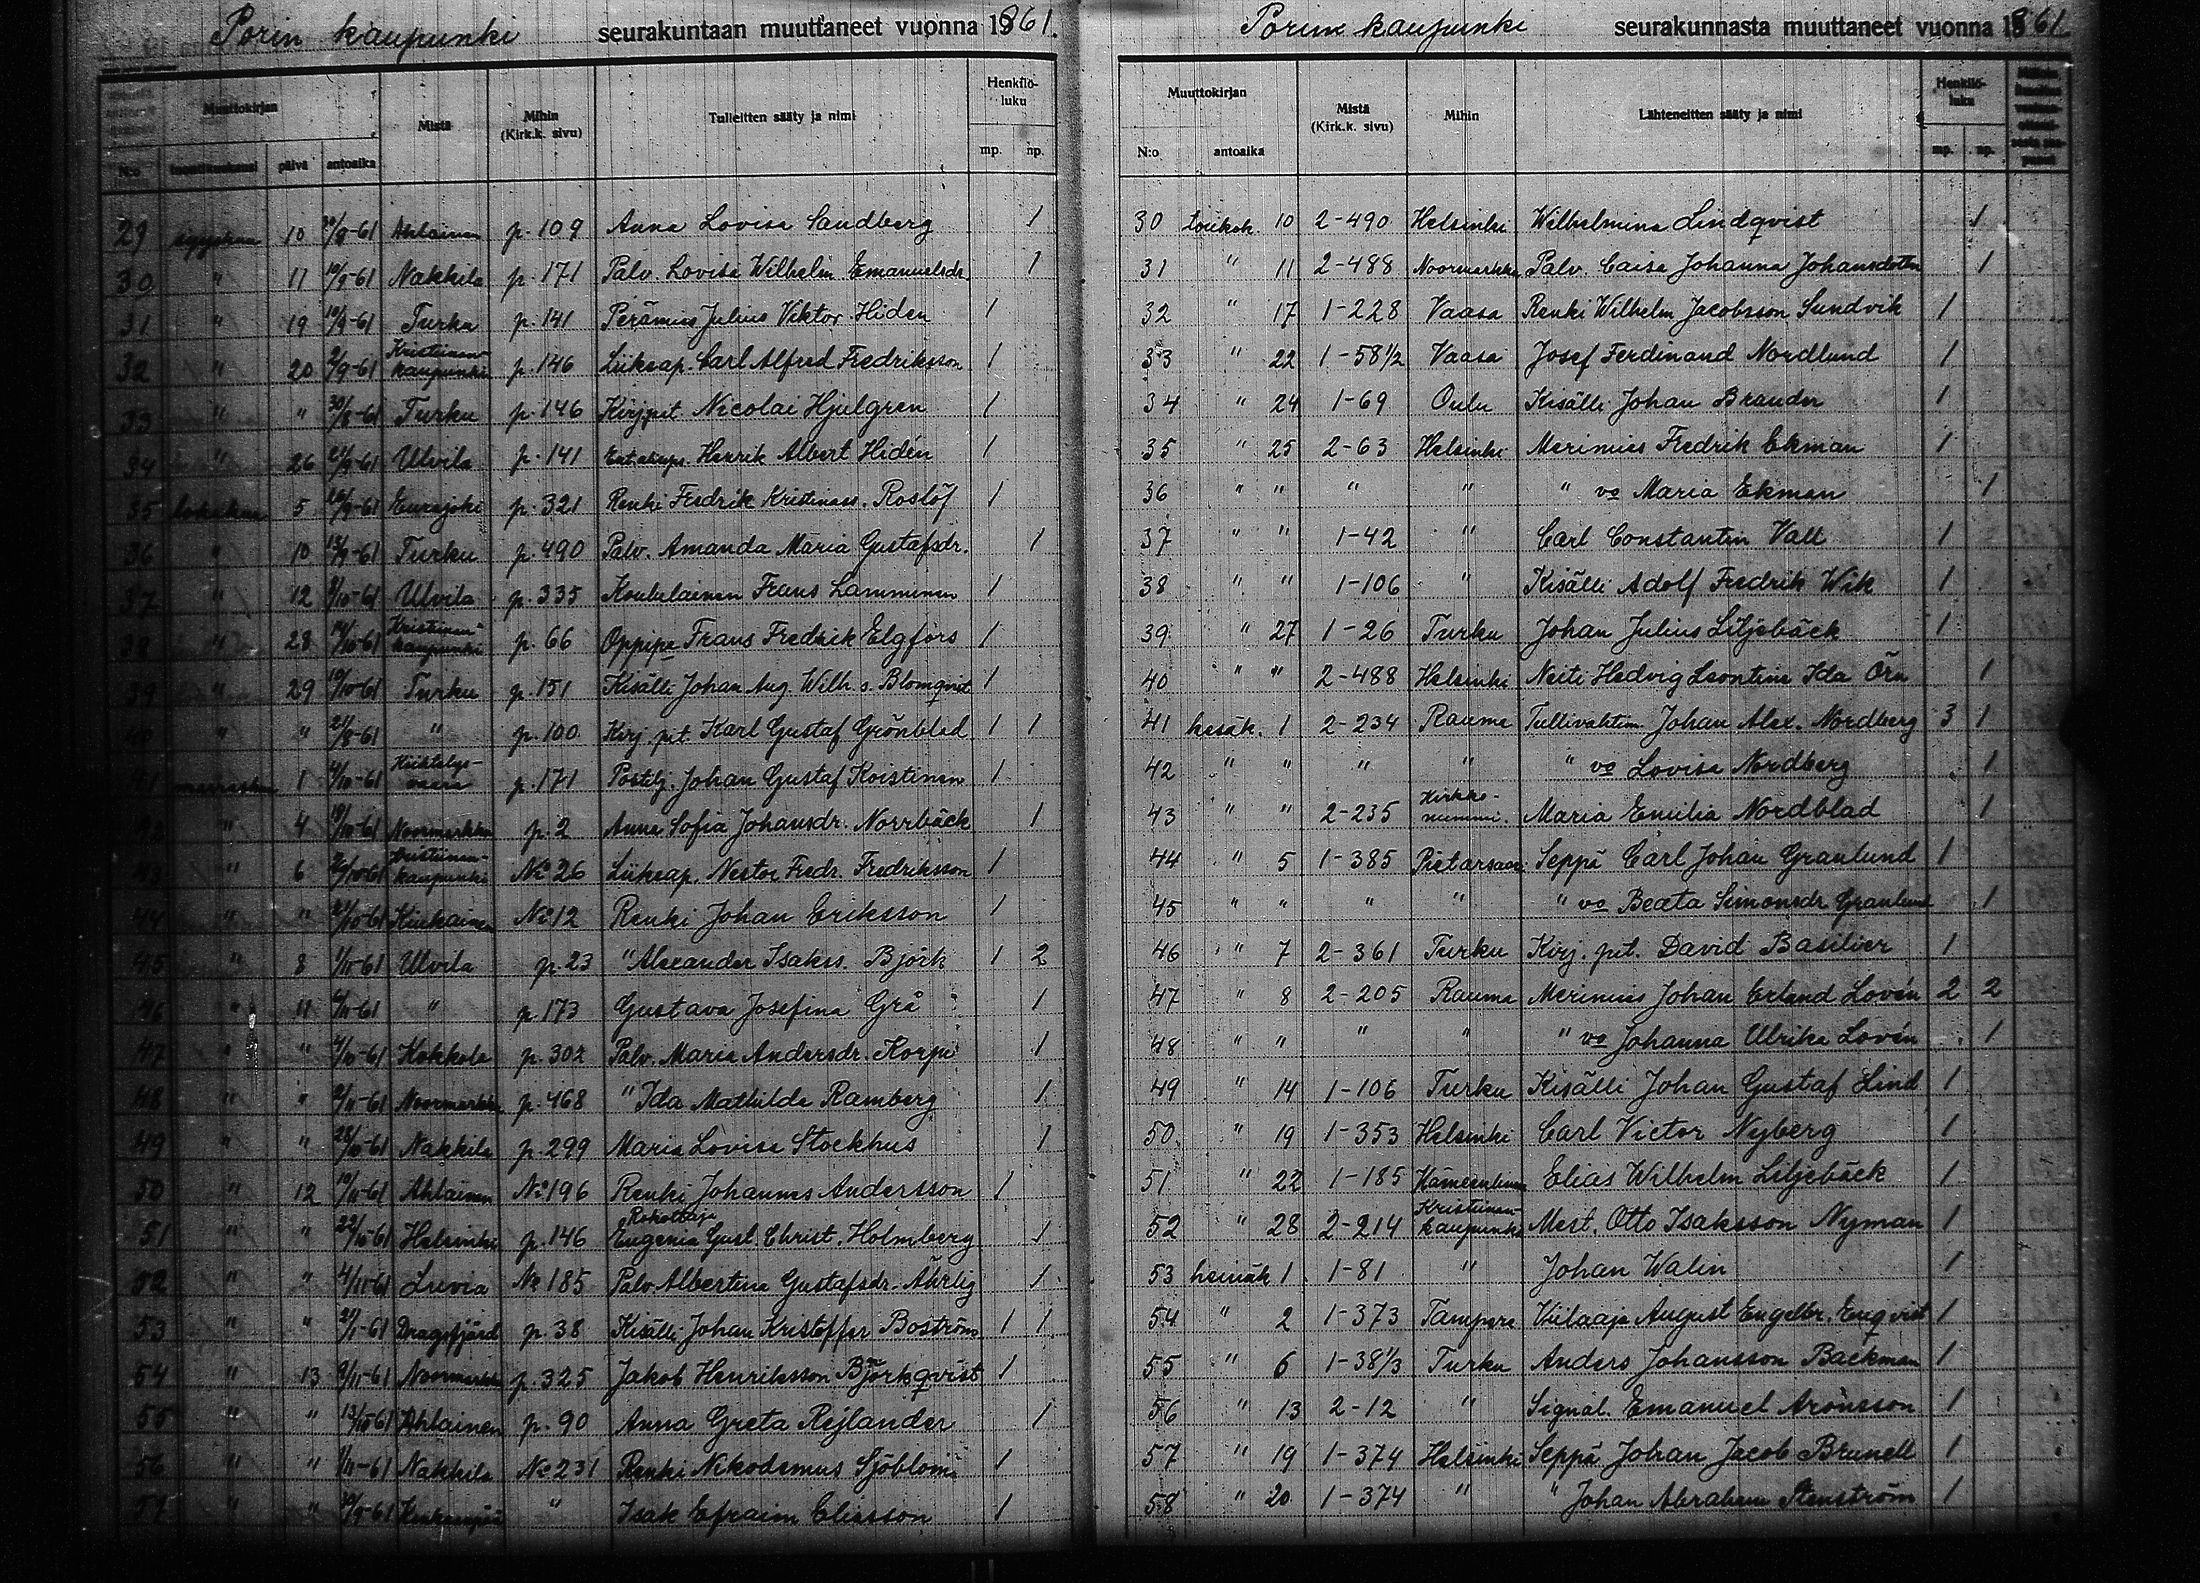 Porin kaupunki seurakuntaan muuttaneet vuonna 1861.
Muuttokirjan Mistä Mihin (Kirk.k. sivu) Tulleitten sääty ja nimi Henkilö-luku
N:o päivä antoaika mp. np.
29 syyskuu 10 /9-61 Ahlainen p. 109 Anna Lovisa Sandberg 1
30 " 11 10/9-61 Nakkila p. 171 Palv. Lovisa Wilhelm. Emanuelsdr. 1
31 " 19 10/9-61 Turku p. 141 Perämies Julius Viktor Hiden 1
32 " 20 2/9-61 Kristiinankaupunki p. 146 Liikeap. Carl Alfred Fredriksson 1
33 " " 30/8-61 Turku p. 146 Kirj.pit. Nicolai Hjulgren 1
34 " 26 /9-61 Ulvila p. 141 Henrik Albert Hidén 1
35 lokakuu 5 /9-61 Eurajoki p. 321 Renki Fredrik Kristinass. Roslöf 1
36 " 10 13/9-61 Turku p. 490 Palv. Amanda Maria Gustafsdr. 1
37 " 12 /10-61 Ulvila p. 335 Koululainen Frans Lamminen 1
38 " 28 14/10-61 Kristiinankaupunki p. 66 Oppipo. Frans Fredrik Elgfors 1
39 " 29 19/10-61 Turku p. 151 Kisälli Johan Aug. Wilh. s. Blomqvist 1
40 " " 21/8-61 " p. 100 Kirj. pit. Karl Gustaf Grönblad 1 1
41 marraskuu 1 4/10-61 Kiihtelysvaara p. 171 Postilj. Johan Gustaf Koistinen 1
42 " 4 19/10-61 Noormarkku p. 2 Anna Sofia Johansdr. Norrbäck 1
43 " 6 /10-61 Kristiinankaupunki No 26 Liikeap. Nestor Fredr. Fredriksson 1
44 " " 21/10-61 Kiukainen No 12 Renki Johan Eriksson 1
45 " 8 1/11-61 Ulvila p. 23 " Alexander Isakss. Björk 1 2
46 " 11 /11-61 " p. 173 Gustava Josefina Grå 1
47 " " /10-61 Kokkola p. 302 Palv. Maria Andersdr. Korpi 1
48 " " /11-61 Noormarkku p. 468 " Ida Mathilda Ramberg 1
49 " " 28/10-61 Nakkila p. 299 Maria Lovisa Stockhus 1
50 " 12 10/11-61 Ahlainen No 196 Renki Johannes Andersson 1
51 " " 22/10-61 Helsinki p. 146 Rokottaja Eugenia Gust. Christ. Holmberg 1
52 " " 4/11-61 Luvia No 185 Palv. Albertina Gustafsdr. Ährlig 1
53 " " -61 Dragsfjärd p. 38 Kisälli Johan Kristoffer Boström 1 1
54 " 13 9/11-61 Noormarkku p. 325 Jakob Henriksson Björkqvist 1
55 " " 13/10-61 Ahlainen p. 90 Anna Greta Rejlander 1
56 " " 1/11-61 Nakkila No 231 Renki Nikodemus Sjöblom 1
57 " " -61 " Isak Efraim Eliasson 1
Porin kaupunki seurakunnasta muuttaneet vuonna 1861.
Muuttokirjan Mistä (Kirk.k. sivu) Mihin Lähteneitten sääty ja nimi Henkilö-luku
N:o antoaika mp. np.
30 toukok. 10 2-490 Helsinki Wilhelmina Lindqvist 1
31 " 11 2-488 Noormarkku Palv. Caisa Johanna Johansdotter 1
32 " 17 1-228 Vaasa Renki Wilhelm Jacobsson Sundvik 1
33 " 22 1-58 1/2 Vaasa Josef Ferdinand Nordlund 1
34 " 24 1-69 Oulu Kisälli Johan Brander 1
35 " 25 2-63 Helsinki Merimies Fredrik Ekman 1
36 " " " " " vo Maria Ekman 1
37 " " 1-42 " Carl Constantin Vall 1
38 " " 1-106 " Kisälli Adolf Fredrik Wik 1
39 " 27 1-26 Turku Johan Julius Liljebäck 1
40 " " 2-488 Helsinki Neiti Hedvig Leontine Ida Örn 1
41 kesäk. 1 2-234 Rauma Tullivahtim. Johan Alex. Nordberg 3 1
42 " " " " " vo Lovisa Nordberg 1
43 " " 2-235 Kirkkonummi. Maria Emilia Nordblad 1
44 " 5 1-385 Pietarsaari Seppä Carl Johan Granlund 1
45 " " " " " vo Beata Simonsdr Granlund 1
46 " 7 2-361 Turku Kirj. pit. David Basilier 1
47 " 8 2-205 Rauma Merimies Johan Erland Lovén 2 2
48 " " " " " vo Johanna Ulrika Lovén 1
49 " 14 1-106 Turku Kisälli Johan Gustaf Lind 1
50 " 19 1-353 Helsinki Carl Victor Nyberg 1
51 " 22 1-185 Hämeenlinna Elias Wilhelm Liljebäck 1
52 " 28 2-214 Kristiinankaupunki Mest. Otto Isaksson Nyman 1
53 heinäk 1 1-81 " Johan Walin 1
54 " 2 1-373 Tampere Viilaaja August Engelbr. Enqvist 1
55 " 6 1-38 1/3 Turku Anders Johansson Backman 1
56 " 13 2-12 " Signal. Emanuel Aronsson 1
57 " 19 1-374 Helsinki Seppä Johan Jacob Brunell 1
58 " 20 1-374 " " Johan Abraham Stenström 1